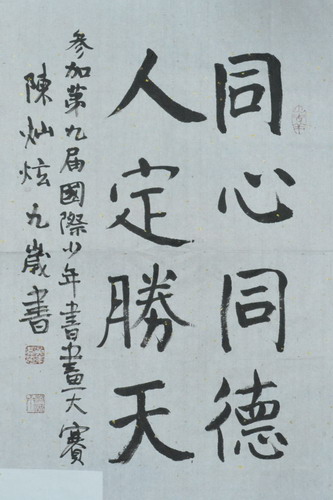 同心同德
人定勝天
參加第九届國際少年書畫大賽
陳灿炫九歲書